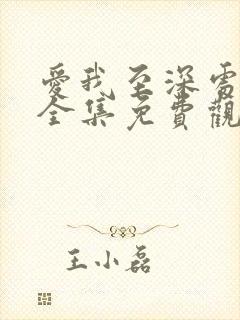 愛我至深電
全集免費觀
王小磊